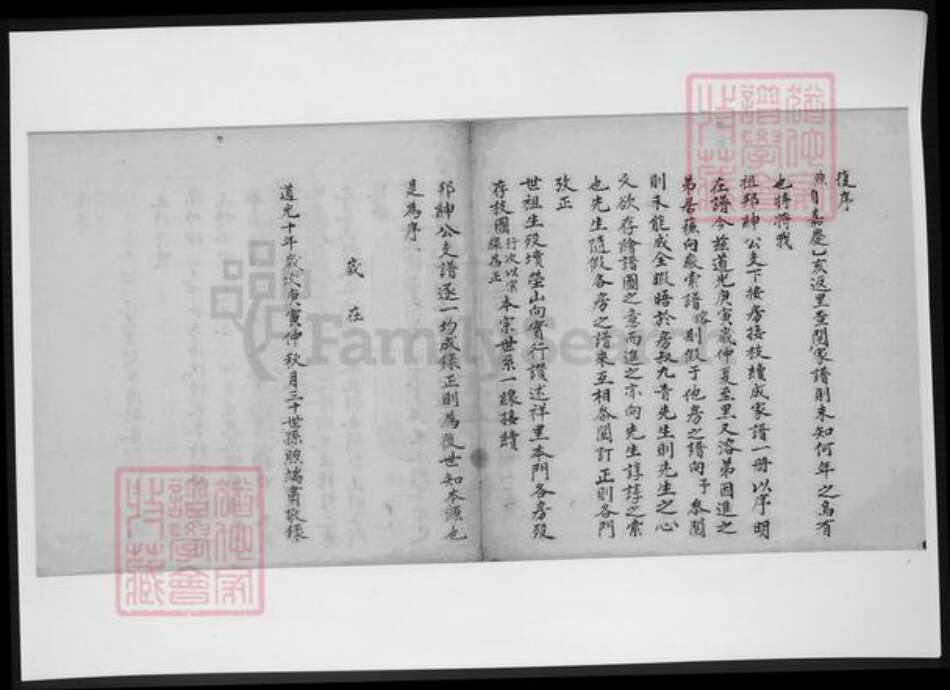 復序
自嘉慶乙亥返里查閱家譜則未知何年之烏有
也特將我
祖邦紳公支下接房接枝續成家譜一冊以序明
在譜今茲道光庚寅歲仲夏至里又溶弟因進之
弟居蕪向發索譜 則假于他房之譜向予參閱
則未能成全暇晤於房叔九青先生則先生之心
又欲存繪譜圖之意而進之亦向先生諄諄之索
也先生隨假各房之譜來互相參閱訂正則各門
攷正
世祖生歿墳塋山向實行讚述祥里本門各房歿
存枝圖行次以宗條為正本宗世系一線接續
邦紳公支譜逐一均成錄正則為後世知本源也
是為序
歲在
道光十年歲次庚寅仲秋月三十世孫 端肅敬錄
FamilySearch
譜學會
特藏